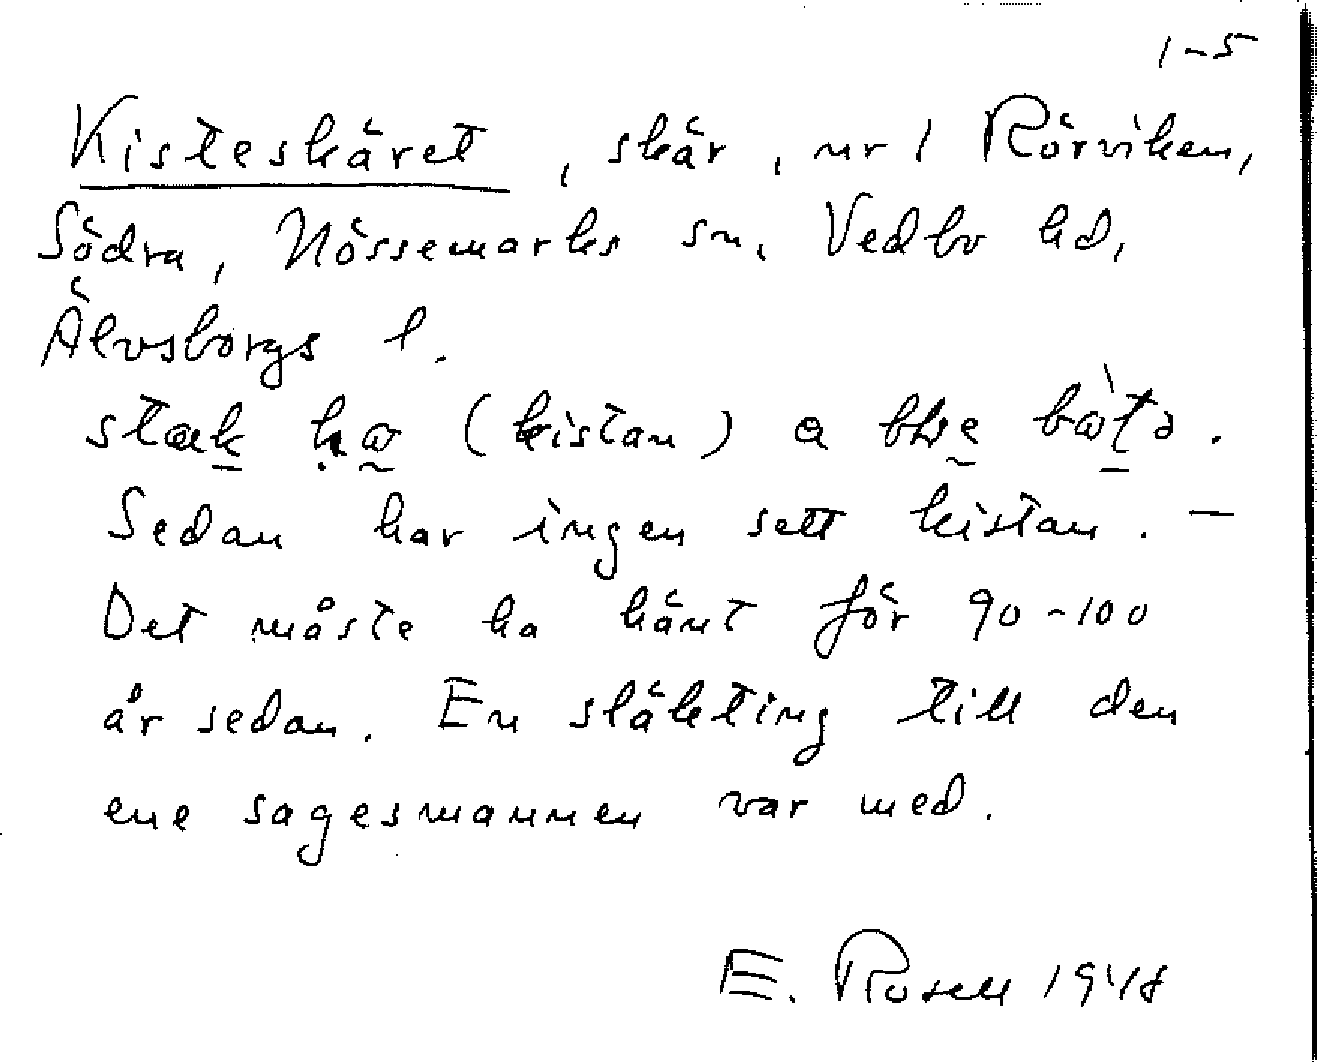 1-5
Kisteskäret, skär, nr 1 Rörviken,
Södra, Nössemarks sn, Vedbo hd,
Älvsborgs l.
(kistan)
Sedan har ingen sett kistan. –
Det måste ha hänt för 90-100
år sedan. En släkting till den
ene sagesmannen var med.
E. Rosell 1948